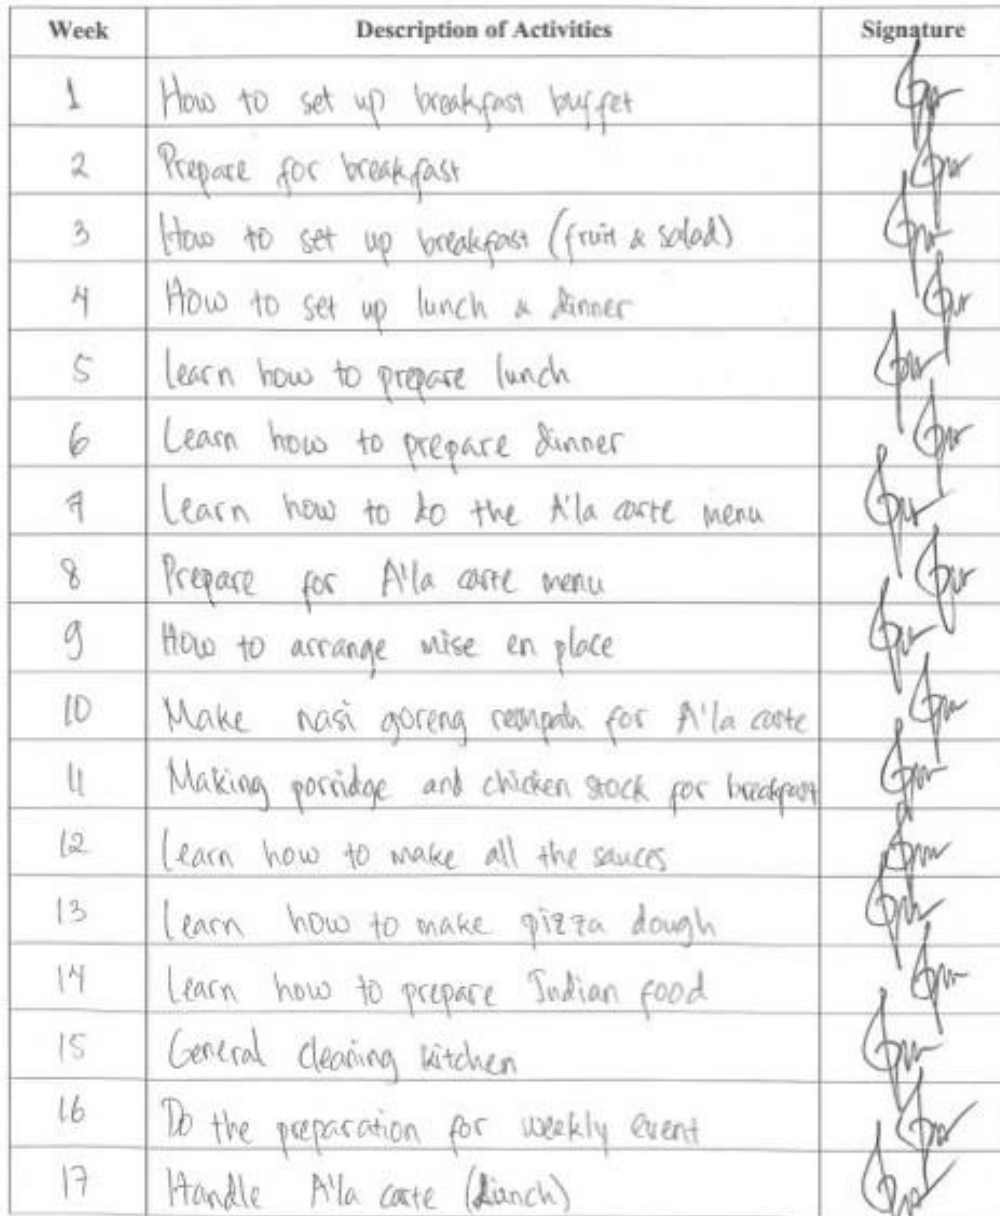 Week Description of Activities Signature
1 How to set up breakfast buffet
2 Prepare for breakfast
3 How to set up breakfast (fruit & salad)
4 How to set up lunch & dinner
5 Learn how to prepare lunch
6 Learn how to prepare dinner
7 Learn how to do the A'la carte menu
8 Prepare for A'la carte menu
9 How to arrange mise en place
10 Make nasi goreng rempah for A'la carte
11 Making porridge and chicken stock for breakfast
12 Learn how to make all the sauces
13 Learn how to make pizza dough
14 Learn how to prepare Indian food
15 General cleaning kitchen
16 Do the preparation for weekly event
17 Handle A'la carte (Lunch)